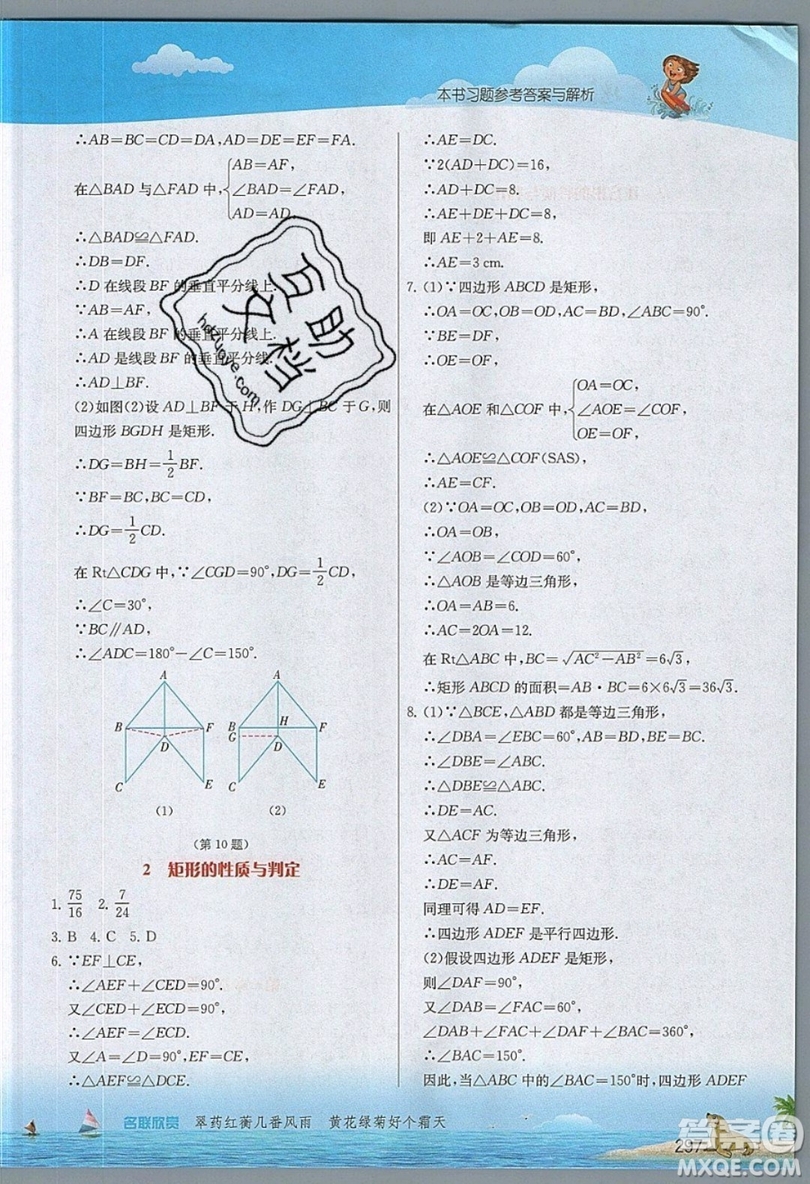 本书习题参考答案与解析
∴AB=BC=CD=DA,AD=DE=EF=FA.
在△BAD 与△FAD 中,{AB=AF,
∠BAD=∠FAD,
AD=AD,
∴△BAD≌△FAD.
∴DB=DF.
∴D 在线段 BF 的垂直平分线上.
∵AB=AF,
∴A 在线段 BF 的垂直平分线上.
∴AD 是线段 BF 的垂直平分线.
∴AD⊥BF.
(2)如图(2)设 AD⊥BF 于 H,作 DG⊥BC 于 G,则
四边形 BGDH 是矩形.
∴DG=BH=1/2BF.
∵BF=BC,BC=CD,
∴DG=1/2CD.
在 Rt△CDG 中,∵∠CGD=90°,DG=1/2CD,
∴∠C=30°,
∵BC∥AD,
∴∠ADC=180°-∠C=150°.
A
B F
D
C E
(1)
A
B H F
G D
C E
(2)
(第 10 题)
2 矩形的性质与判定
1. 75/16 2. 7/24
3. B 4. C 5. D
6. ∵EF⊥CE,
∴∠AEF+∠CED=90°.
又∠CED+∠ECD=90°,
∴∠AEF=∠ECD.
又∠A=∠D=90°,EF=CE,
∴△AEF≌△DCE.
∴AE=DC.
∵2(AD+DC)=16,
∴AD+DC=8.
∴AE+DE+DC=8.
即 AE+2+AE=8.
∴AE=3 cm.
7. (1)∵四边形 ABCD 是矩形,
∴OA=OC,OB=OD,AC=BD,∠ABC=90°.
∵BE=DF,
∴OE=OF,
在△AOE 和△COF 中,{OA=OC,
∠AOE=∠COF,
OE=OF,
∴△AOE≌△COF(SAS),
∴AE=CF.
(2)∵OA=OC,OB=OD,AC=BD,
∴OA=OB,
∵∠AOB=∠COD=60°,
∴△AOB 是等边三角形,
∴OA=AB=6.
∴AC=2OA=12.
在 Rt△ABC 中,BC=√(AC²-AB²)=6√3,
∴矩形 ABCD 的面积=AB·BC=6×6√3=36√3.
8. (1)∵△BCE,△ABD 都是等边三角形,
∴∠DBA=∠EBC=60°,AB=BD,BE=BC.
∴∠DBE=∠ABC.
∴△DBE≌△ABC.
∴DE=AC.
又△ACF 为等边三角形,
∴AC=AF.
∴DE=AF.
同理可得 AD=EF.
∴四边形 ADEF 是平行四边形.
(2)假设四边形 ADEF 是矩形,
则∠DAF=90°.
又∠DAB=∠FAC=60°,
∠DAB+∠FAC+∠DAF+∠BAC=360°,
∴∠BAC=150°.
因此,当△ABC 中的∠BAC=150°时,四边形 ADEF
名联欣赏 翠药红蘅几番风雨 黄花绿菊好个霜天
297
互助文档
hdzuoye.com
答案圈
MXQE.COM